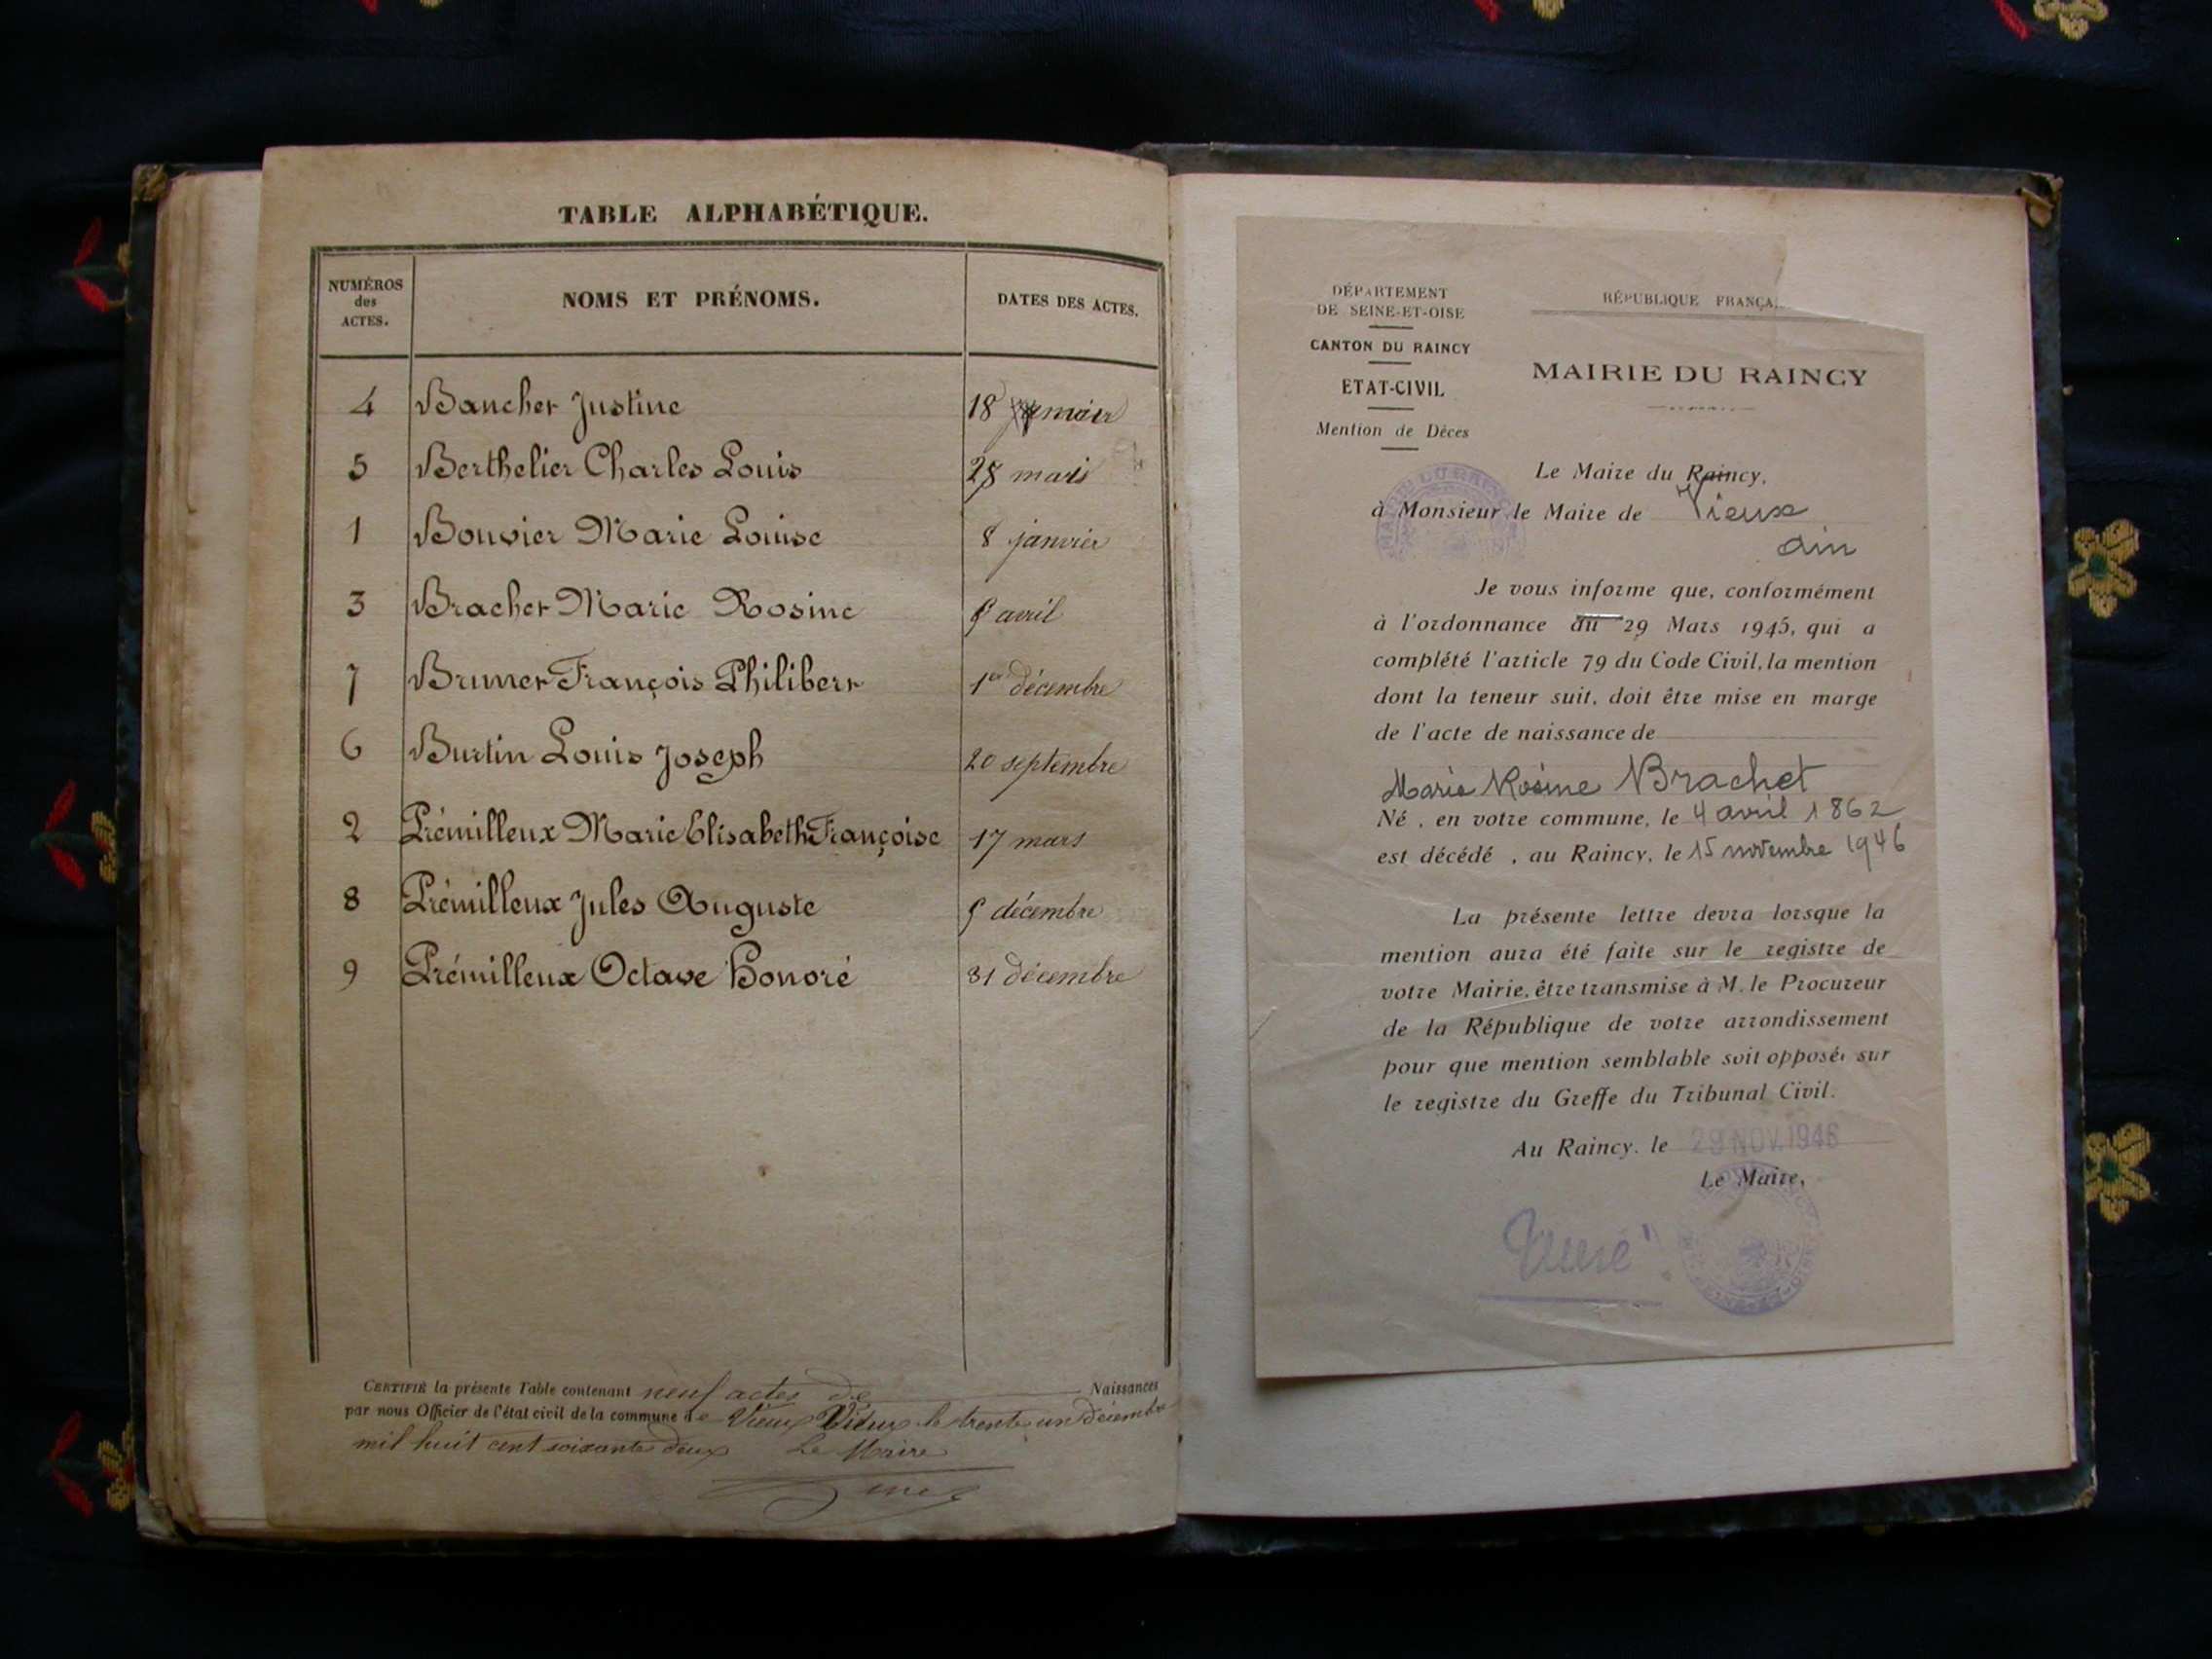 TABLE ALPHABÉTIQUE.
NUMÉROS des ACTES. NOMS ET PRÉNOMS. DATES DES ACTES.
4 Bancher Justine 18
5 Berthelier Charles Louis 28 mars
1 Bouvier Marie Louise 8 janvier
3 Brachet Marie Rosine 5 avril
7 Brunet François Philibert 1er décembre
6 Burtin Louis Joseph 20 septembre
2 Prémilleux Marie Elisabeth Françoise 17 mars
8 Prémilleux Jules Auguste 5 décembre
9 Prémilleux Octave Honoré 31 décembre
CERTIFIÉ la présente Table contenant neuf actes de Naissances
par nous Officier de l'état civil de la commune de Vieux le trente un Décembre
mil huit cent soixante deux Le Maire
DÉPARTEMENT
DE SEINE-ET-OISE
CANTON DU RAINCY
ETAT-CIVIL
Mention de Décès
RÉPUBLIQUE FRANÇA
MAIRIE DU RAINCY
Le Maire du Raincy,
à Monsieur le Maire de Vieux
Ain
Je vous informe que, conformément
à l'ordonnance du 29 Mars 1945, qui a
complété l'article 79 du Code Civil, la mention
dont la teneur suit, doit être mise en marge
de l'acte de naissance de
Marie Rosine Brachet
Né , en votre commune, le 4 avril 1862
est décédé , au Raincy, le 15 novembre 1946
La présente lettre devra lorsque la
mention aura été faite sur le registre de
votre Mairie, être transmise à M. le Procureur
de la République de votre arrondissement
pour que mention semblable soit opposée sur
le registre du Greffe du Tribunal Civil.
Au Raincy, le 29 NOV. 1946
Le Maire,